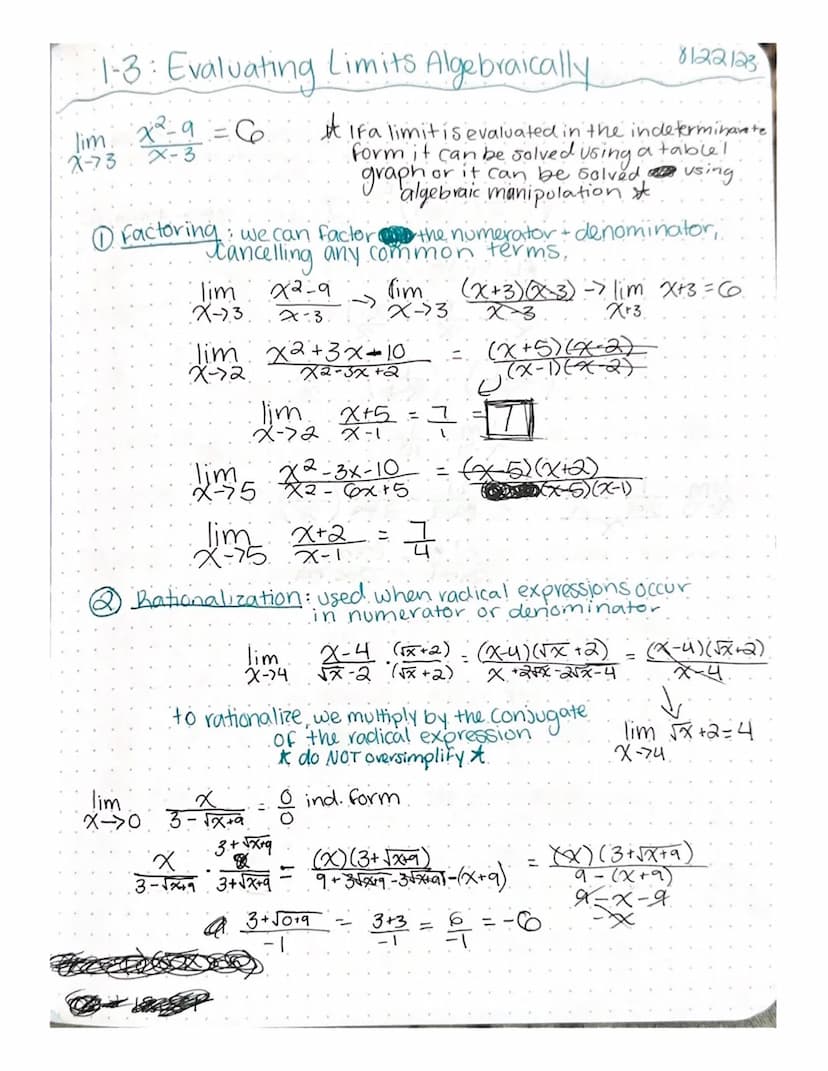 1-3: Evaluating Limits Algebraically 8/22/23
lim x→3 (x²-9)/(x-3) = 6
☆ If a limit is evaluated in the indeterminante
form it can be solved using a table/
graph or it can be solved using
algebraic manipulation ☆
① Factoring: we can factor the numerator + denominator,
cancelling any common terms.
lim x→3 (x²-9)/(x-3) → lim x→3 (x+3)(x-3)/(x-3) → lim x→3 x+3 = 6
lim x→2 (x²+3x-10)/(x²-3x+2) = (x+5)(x-2)/(x-1)(x-2)
lim x→2 (x+5)/(x-1) = 7/1 = 7
lim x→5 (x²-3x-10)/(x²-6x+5) = (x-5)(x+2)/(x-5)(x-1)
lim x→5 (x+2)/(x-1) = 7/4
② Rationalization: used when radical expressions occur
in numerator or denominator.
lim x→4 (x-4)/(√x-2) · (√x+2)/(√x+2) = (x-4)(√x+2)/(x+2√x-2√x-4) = (x-4)(√x+2)/(x-4)
to rationalize, we multiply by the conjugate
of the radical expression
☆ do NOT oversimplify ☆
lim x→4 √x+2=4
lim x→0 x/(3-√x+9) = 0/0 ind. form
x/(3-√x+9) · (3+√x+9)/(3+√x+9) = (x)(3+√x+9)/(9+3√x+9-3√x+9-(x+9)) = (x)(3+√x+9)/(9-(x+9))
9-x-9
-x
(3+√0+9)/-1 = (3+3)/-1 = 6/-1 = -6